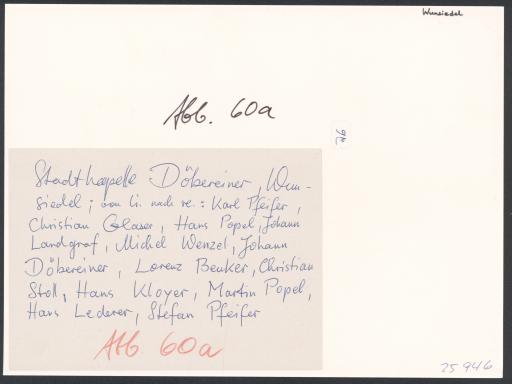 Wunsiedel
Abb. 60a
26
Stadtkapelle Döbereiner, Wun-
siedel; von li. nach re.: Karl Pfeifer,
Christian Glaser, Hans Popel, Johann
Landgraf, Michel Wenzel, Johann
Döbereiner, Lorenz Beuker, Christian
Stoll, Hans Kloyer, Martin Popel,
Hans Lederer, Stefan Pfeifer
Abb. 60a
25946